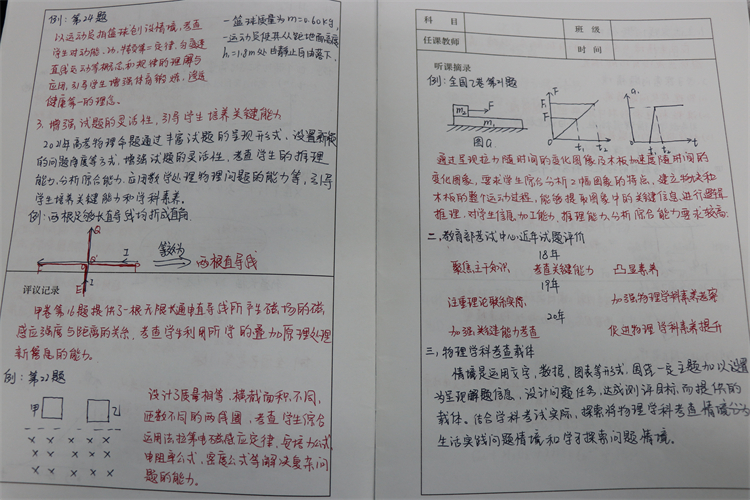 例：第24题
以运动员拍篮球创设情境，考查
学生对动能、功、牛顿第二定律、匀变速
直线运动等概念和规律的理解与
应用，引导学生增强体育锻炼，
健康第一的理念。
一篮球质量为m=0.60kg，
一运动员使其从距地面高度
h₁=1.8m处由静止自由落下。
3. 增强试题的灵活性，引导学生培养关键能力
2021年高考物理命题通过丰富试题的呈现形式、设置新颖
的问题角度等方式，增强试题的灵活性，考查学生的推理
能力、分析综合能力、应用数学处理物理问题的能力等，引导
学生培养关键能力和学科素养。
例：两根足够长直导线均折成直角
Q
I
等效为
两根直导线
P
O
E
O'
F
I
评议记录
甲卷第16题提供了一根无限长通电直导线所产生磁场的磁
感应强度与距离的关系，考查学生利用所学的叠加原理处理
新信息的能力。
例：第22题
甲
乙
设计了质量相等、横截面积不同、
匝数不同的两线圈，考查学生综合
运用法拉第电磁感应定律、安培力公式、
电阻率公式、密度公式等解决复杂问
题的能力。
科 目
班 级
任课教师
时 间
听课摘录
例：全国乙卷第21题
m₂
F
m₁
图a
F
F₂
F₁
t₁
t₂
t
a
t₁
t₂
t
通过呈现拉力随时间的变化图象与木板加速度随时间的
变化图象，要求学生综合分析2幅图象的特点，建立物块和
木板的整个运动过程，能够提取图象中的关键信息，进行逻辑
推理，对学生信息加工能力、推理能力、分析综合能力要求较高
二、教育部考试中心近年试题评价
18年
聚焦主干知识
考查关键能力
凸显素养
19年
注重理论联系实际
加强物理学科素养考察
20年
加强关键能力考查
促进物理学科素养提升
三、物理学科考查载体
情境是运用文字，数据，图表等形式，围绕一定主题加以设置
为呈现解题信息，设计问题任务，达成测评目标，而提供的
载体。结合学科考试实际，探索将物理学科考查情境分为
生活实践问题情境和学习探索问题情境。